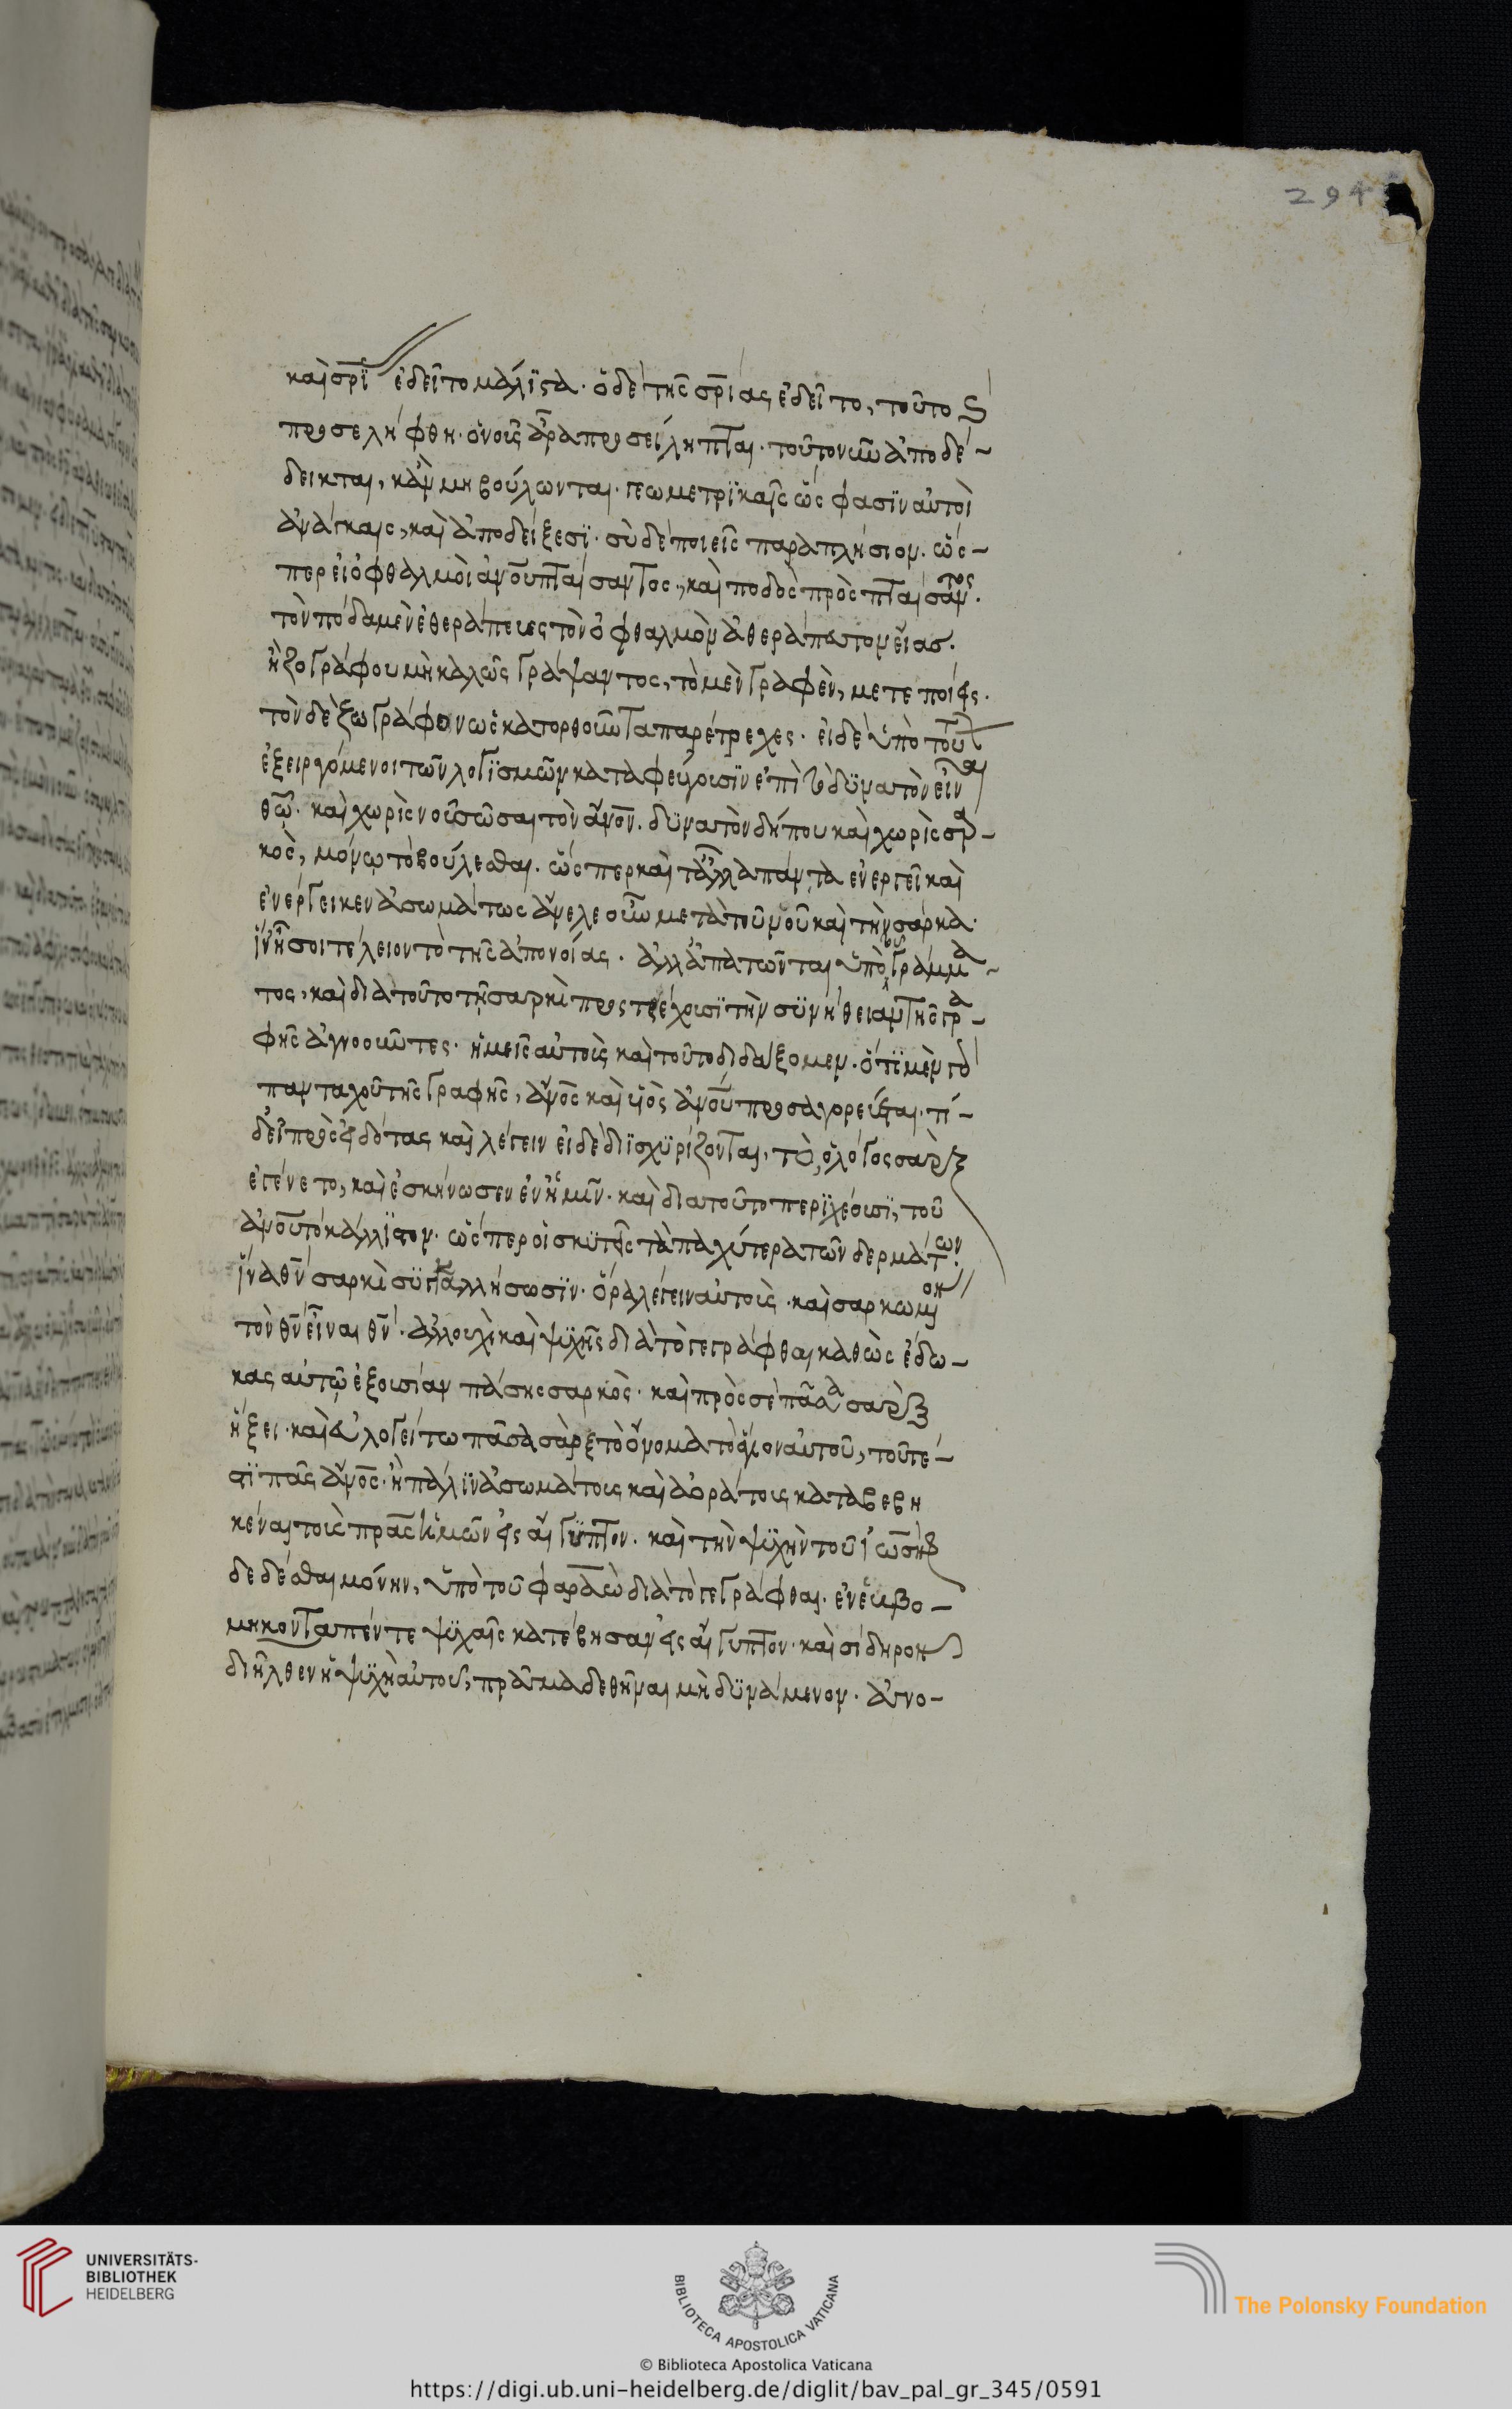 294
καὶ σρί̈ ἐδεῖτο μάλιστα· ὃ δὲ τῆς σρίας ἐδεῖτο, τοῦτο κ
προσελήφθη· ὁ νοῦς ἄρα προσείληπται· τοῦτο νῦν ἀποδέ-
δεικται, κἂν μὴ βούλωνται· γεωμετρικαῖς ὥς φασὶν αὐτοὶ
ἀνάγκαις, καὶ ἀποδείξεσι· σὺ δὲ ποιεῖς παραπλήσιον· ὥσ-
περ εἰ ὀφθαλμοῦ ἀνου πταίσαντος, καὶ ποδὸς προσπταίσαντος·
τὸν πόδα μὲν ἐθεράπευες τὸν ὀφθαλμὸν ἀθεράπευτον εἴασ·
ἢ ζογράφου μὴ καλῶς γράψαντος, τὸ μὲν γραφὲν, μετεποίεις·
τὸν δὲ ζωγράφον ὡς κατορθοῦντα παρέτρεχες· εἰ δὲ ὑπὸ τούτ
ἐξειργόμενοι τῶν λογισμῶν καταφεύγουσιν ἐπὶ τὸ δυνατὸν εἶναι
θῶ· καὶ χωρὶς νοῦ σῶσαι τὸν ἄνον· δυνατὸν δήπου καὶ χωρὶς σαρ-
κὸς, μόνῳ τὸ βούλεσθαι· ὥσπερ καὶ τἄλλα πάντα ἐνεργεῖ καὶ
ἐνέργεικεν ἀσωμάτως ἄνελε οὖν μετὰ τοῦ νοῦ καὶ τὴν σάρκα·
ἵν' ᾖ σοι τέλειον τὸ τῆς ἀπονοίας· ἀλλ' ἀπατῶνται ὑπὸ του γράμμα-
τος, καὶ διὰ τοῦτο τῇ σαρκὶ προστρέχουσι τὴν συνήθειαν τῆς γρα-
φῆς ἀγνοοῦντες· ἡμεῖς αὐτοὺς καὶ τοῦτο διδάξομεν· ὅτι μὲν γὰρ
πανταχοῦ τῆς γραφῆς, ἄνος καὶ υἱὸς ἀνου προσαγορεύεται· τί-
δεῖ πρὸς εἰδότας καὶ λέγειν εἰ δὲ διϊσχυρίζονται, τὸ, ὁ λόγος σὰρξ
ἐγένετο, καὶ ἐσκήνωσεν ἐν ἡμῖν· καὶ διὰ τοῦτο περιχέουσι, τοῦ
ἀνου τὸ κάλλιστον· ὥσπερ οἱ σκυτεῖς τὰ παχύτερα τῶν δερμάτων·
ἵνα θν σαρκὶ συγκαλλήσωσιν· ὅρα λέγειν αὐτοὺς· καὶ σαρκῶν μόνον
τὸν θν εἶναι θν· ἀλλ' οὐχὶ καὶ ψυχῆς διὰ τὸ γεγράφθαι καθὼς ἔδω-
κας αὐτῷ ἐξουσίαν πάσης σαρκός· καὶ πρὸς σὲ πᾶσα σὰρξ
ἥξει· καὶ εὐλογείτω πᾶσα σὰρξ τὸ ὄνομα τὸ ἅγιον αὐτοῦ, τοῦτέ-
στι πᾶς ἄνος· ἢ πάλιν ἀσωμάτους καὶ ἀοράτους καταβεβη
κέναι τοὺς πρας ἡμῶν εἰς αἴγυπτον· καὶ τὴν ψυχὴν τοῦ ἰωσὴφ
δεδέσθαι μόνην, ὑπὸ τοῦ φαραὼ διὰ τὸ γεγράφθαι· ἐν ἑβδο-
μήκοντα πέντε ψυχαῖς κατέβησαν εἰς αἴγυπτον· καὶ σίδηρον
διῆλθεν ἡ ψυχὴ αὐτοῦ, πρᾶγμα δεθῆναι μὴ δυνάμενον· ἀγνο-
UNIVERSITÄTS-
BIBLIOTHEK
HEIDELBERG
BIBLIOTECA APOSTOLICA VATICANA
The Polonsky Foundation
© Biblioteca Apostolica Vaticana
https://digi.ub.uni-heidelberg.de/diglit/bav_pal_gr_345/0591